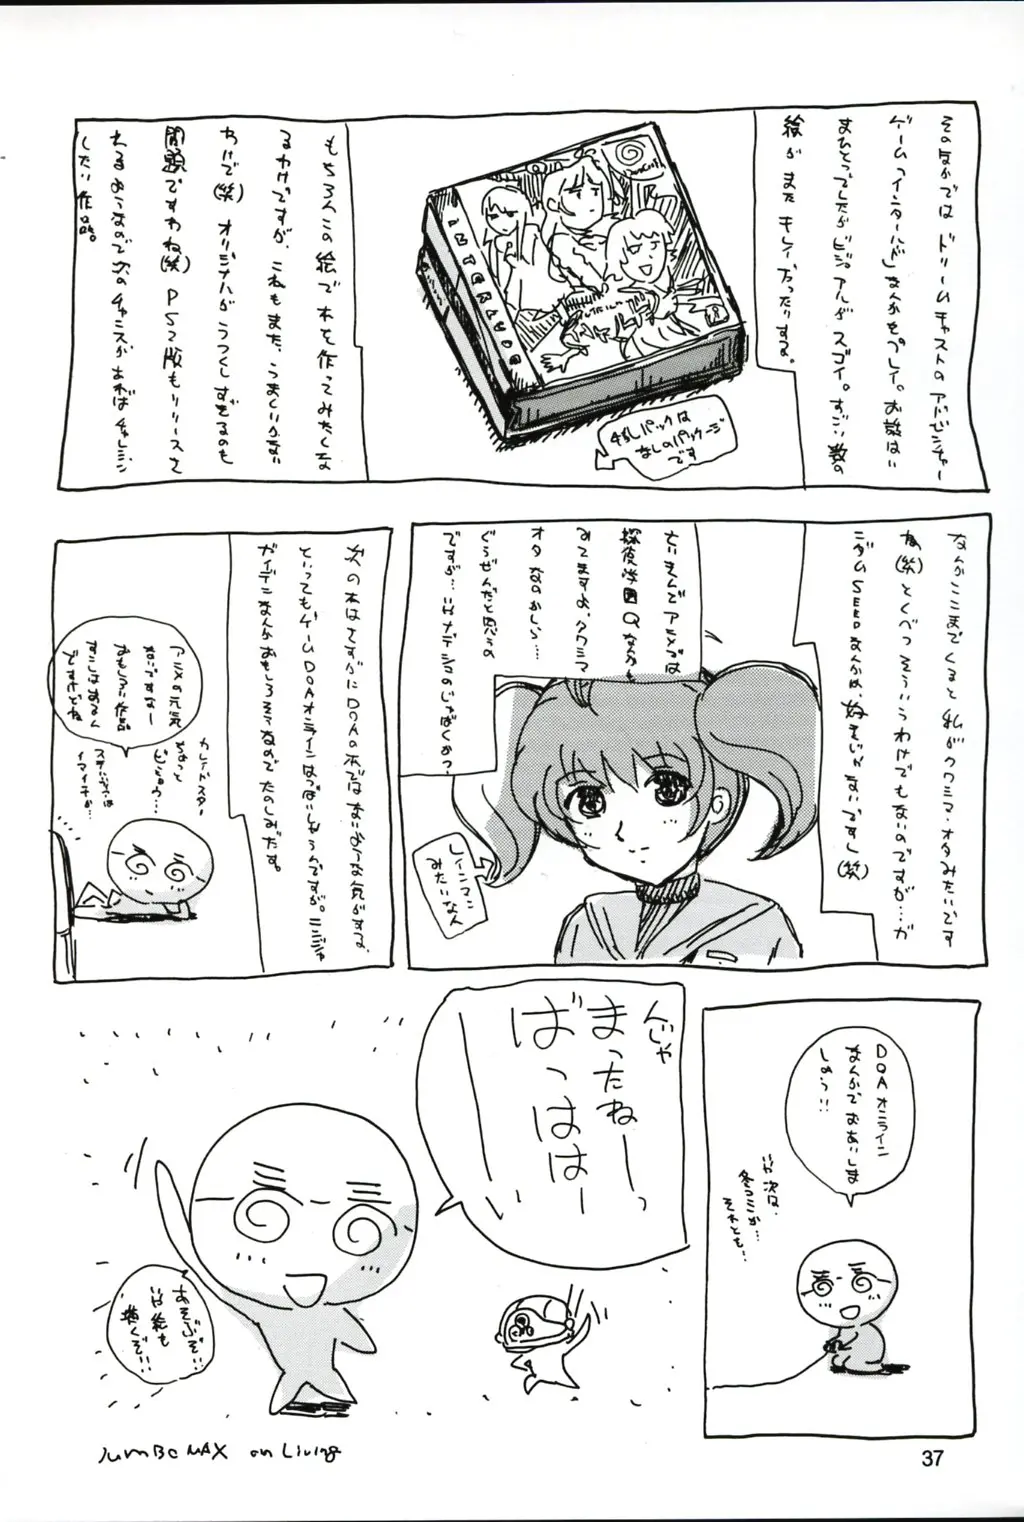 そのなかでは ドリームキャストのアドベンチャー
ゲーム「インタールード」なんかをプレイ。お話はい
まひとつでしたがビジュアルがスゴイ。すごい数の
絵がまたキレイだったりする。
INTERLUDE
ちなみにパックは
なしのパッケージ
です
もちろんこの絵で本を作ってみたくな
るわけですが、これもまた、うまくいかない
わけで(笑) オリジナルがうつくしすぎるのも
問題ですわね(笑) PS2版もリリースさ
れるようなので次のチャンスがあればチャレンジ
したい作品。
なんかここまでくると私がクワシマ・オタみたいです
ね(笑)とくべつそういうわけでもないのですが…ガ
ンダムSEEDなんかは、好きじゃないですし(笑)
探偵学園Qなんかも
みてますよ、クワシマ
オタなのかしら…
ぐうぜんだと思うの
ですが…
レインマン
みたいな人
次の本はさすがにDOAの本ではないような気がする、
といってもゲームDOAオンラインはっぱいしょうんですが。ニンジャ
ガイデンなんかおもしろそうなのでたのしみだす。
アニメの元気
ないですなー
おもしろい作品
すこしはあるん
ですけどね
カレイドスター
ちょっと
ビミョウ…
イマイチか…
DOAオンライン
なんかでおあいしま
しょう!!
次は、
冬コミか…
それとも…
んじゃ
まったねーっ
ばっはは
ーい
あそぶぞ!!
絵も
描くぞ!!
JumBo MAX on Living
37